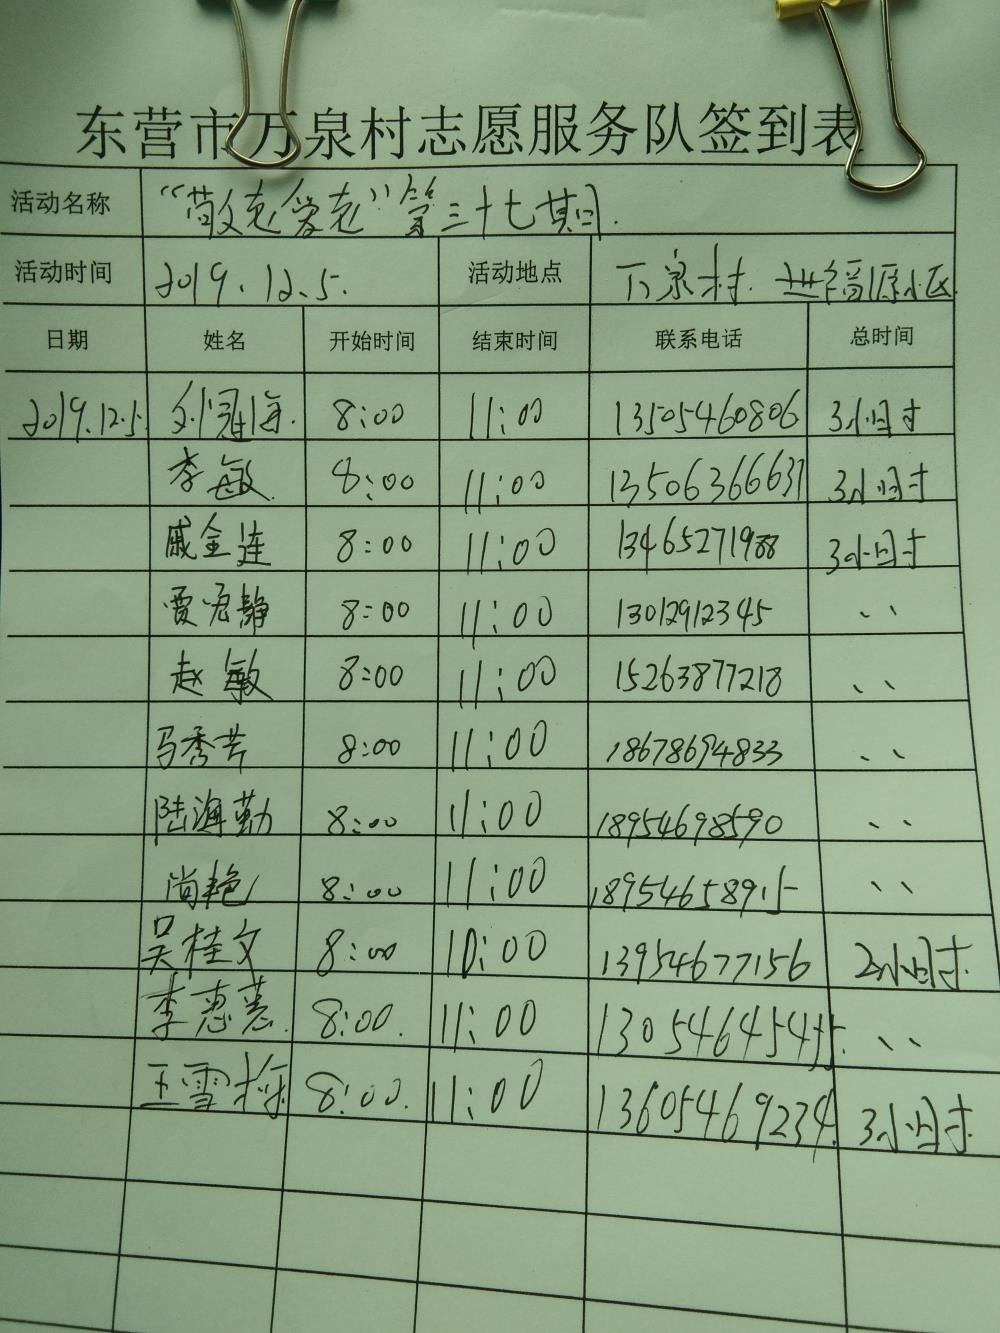 东营市万泉村志愿服务队签到表
活动名称 “敬老爱老”第三十七期.
活动时间 2019.12.5. 活动地点 万泉村. 福源小区
日期 姓名 开始时间 结束时间 联系电话 总时间
2019.12.5. 刘冠海. 8:00 11:00 13505460806 3小时
李敏. 8:00 11:00 13506366631 3小时
戚金连 8:00 11:00 13465271988 3小时
贾君静 8:00 11:00 13012912345 、、
赵敏 8:00 11:00 15263877218 、、
马秀芳 8:00 11:00 18678694833 、、
陆海勤 8:00 11:00 18954698590 、、
尚艳 8:00 11:00 18954658915 、、
吴桂文 8:00 10:00 13954677156 2小时.
李惠 8:00. 11:00 、、
王雪梅 8:00. 11:00 13605469234. 3小时.